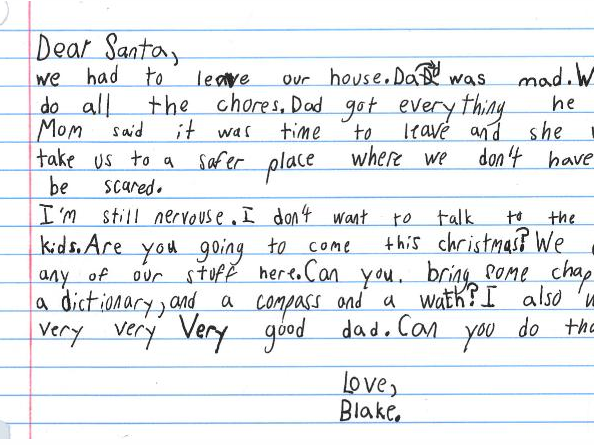 Dear Santa,
we had to leave our house. Dad was mad. W
do all the chores. Dad got every thing he
Mom said it was time to leave and she
take us to a safer place where we don't have
be scared.
I'm still nervouse. I don't want to talk to the
kids. Are you going to come this christmas? We
any of our stuff here. Can you. bring some chap
a dictionary, and a compass and a wath? I also w
very very Very good dad. Can you do tha
Love,
Blake.